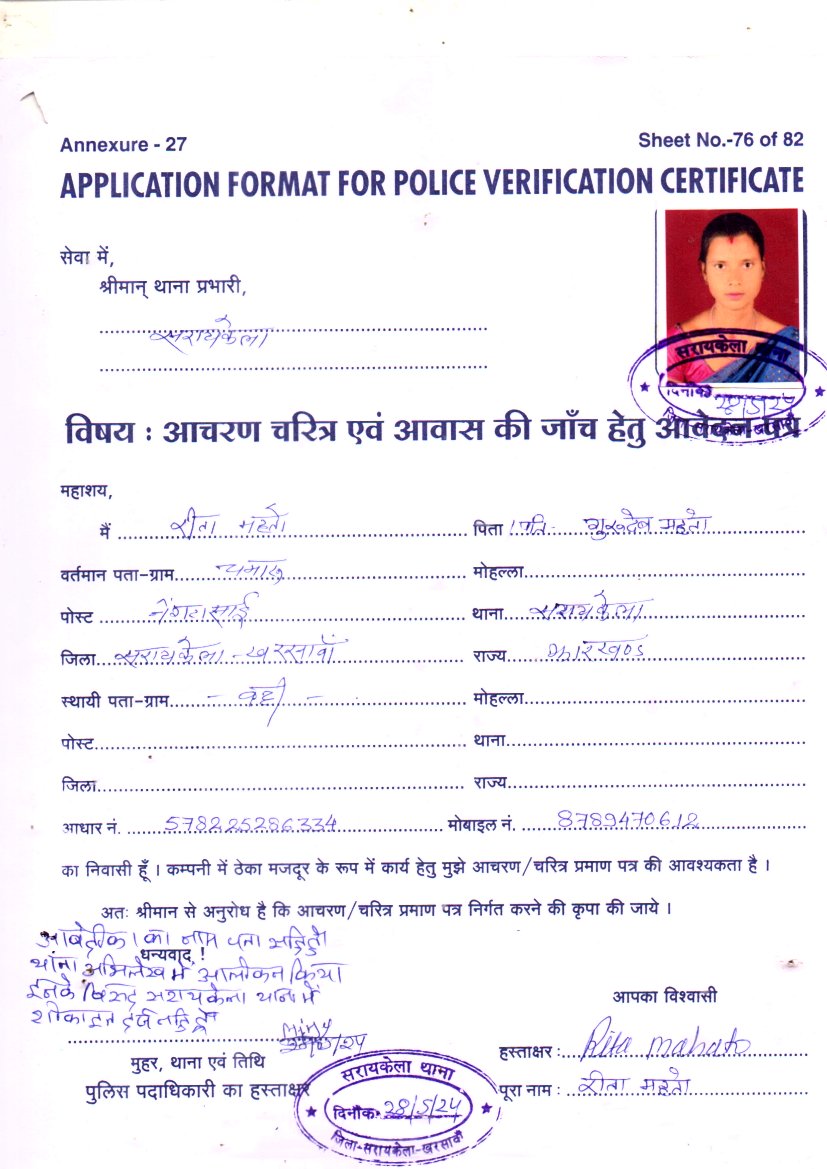 Annexure - 27
Sheet No.-76 of 82
APPLICATION FORMAT FOR POLICE VERIFICATION CERTIFICATE
सेवा में,
श्रीमान् थाना प्रभारी,
सरायकेला
सरायकेला थाना
दिनांक 28/5/24
विषय : आचरण चरित्र एवं आवास की जाँच हेतु आवेदन पत्र
महाशय,
मैं रीता महतो पिता / पति- गुरुदेव महतो
वर्तमान पता-ग्राम मोहल्ला
पोस्ट थाना सरायकेला
जिला सरायकेला-खरसावाँ राज्य झारखण्ड
स्थायी पता-ग्राम - वही - मोहल्ला
पोस्ट थाना
जिला राज्य
आधार नं. 578225286334 मोबाइल नं. 8789470612
का निवासी हूँ । कम्पनी में ठेका मजदूर के रूप में कार्य हेतु मुझे आचरण/चरित्र प्रमाण पत्र की आवश्यकता है ।
अतः श्रीमान से अनुरोध है कि आचरण/चरित्र प्रमाण पत्र निर्गत करने की कृपा की जाये ।
का नाम पता
धन्यवाद !
थाना अभिलेख में किया
इनके विरुद्ध सरायकेला थाना में
आपका विश्वासी
हस्ताक्षर : Rita mahato
मुहर, थाना एवं तिथि
पुलिस पदाधिकारी का हस्ताक्षर
पूरा नाम : रीता महतो
सरायकेला थाना
दिनांक 28/5/24
जिला-सरायकेला-खरसावाँ